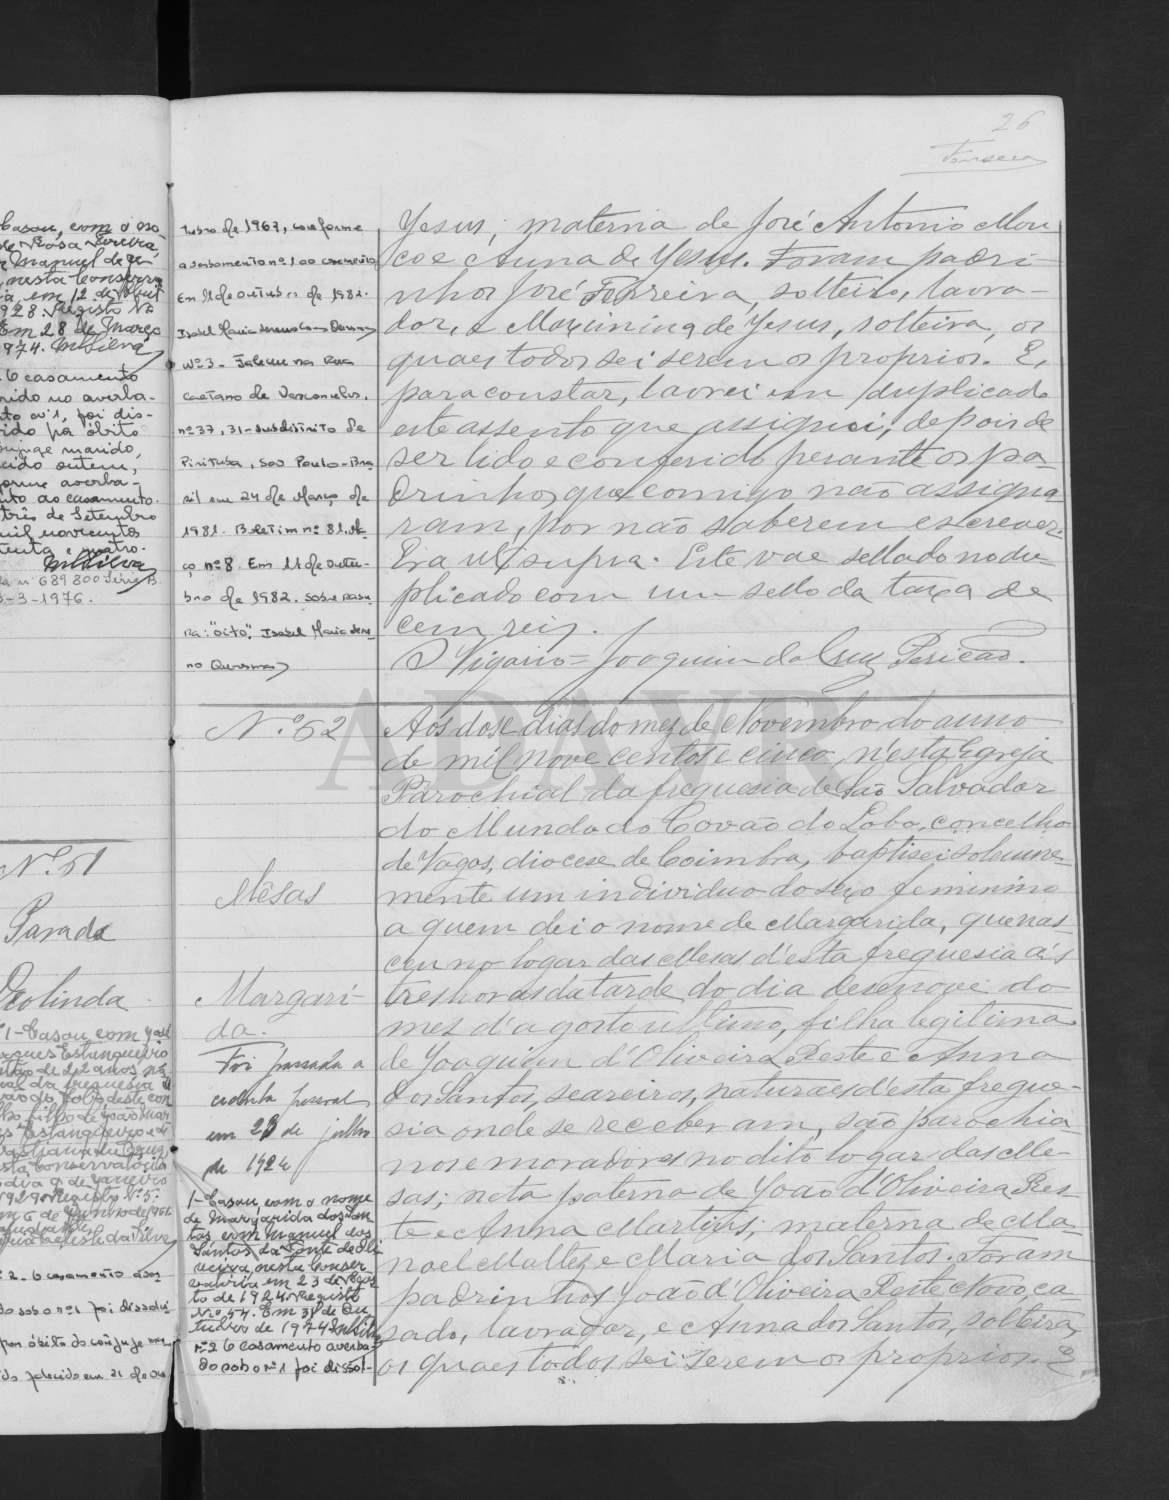 26
Fonseca
Casou, com o
de Rosa Pereira
Manuel de
nesta Conserva
ia em 12 de
928. Registo Nº
Em 28 de Março
974. MSilva
O casamento
rido no averba-
to nº 1, foi dis-
vido por óbito
conjuge marido,
cido ontem,
orme averba-
nto ao casamento.
três de Setembro
mil novecentos
tenta e quatro.
MSilva
nº 689800 Série B.
-3-1976.
Nº 51
Parada
Deolinda
1-Casou com José
Marques Estanqueiro
de 22 anos na
ral da freguesia
vão do Lobo deste con
lho filho de João Mar
es Estanqueiro e de
nesta Conservatória
dia 9 de Janeiro
1929. Registo Nº 5.
2. O casamento aver
do sob o nº 1 foi dissolvi
por óbito do conjuge ma
do falecido em 21 de Ou
tubro de 1967, conforme
averbamento nº 1 ao casamento
Em 11 de Outubro de 1982.
Isabel Maria Moreno Quaresma
Nº 3 - Faleceu na Rua
Caetano de Vasconcelos,
nº 37, 31-subdistrito de
Pirituba, São Paulo-Bra
sil em 24 de Março de
1981. Boletim nº 81. Ma
ço nº 8. Em 11 de Outu-
bro de 1982. Sobre rasu
ra: "oito". Isabel Maria More
no Quaresma
Jesus; materna de José Antonio Mou
co e Anna de Jesus. Foram padri-
nhos José Ferreira, solteiro, lavra-
dor, e Maximina de Jesus, solteira, os
quaes todos sei serem os proprios. E,
para constar, lavrei em duplicado
este assento que assignei, depois de
ser lido e conferido perante os pa-
drinhos, que comigo não assigna-
ram, por não saberem escrever.
Era ut supra. Este vae sellado no du-
plicado com um sello da taxa de
cem reis.
O Vigario = Joaquim da Cruz Pericão.
ADAVR
Nº 52
Mêsas
Margari-
da.
Foi passada a
cedula pessoal
em 23 de julho
de 1924
1-Casou, com o nome
de Margarida dos San
tos com Manuel dos
Santos da Fonte de Oli
veira, nesta Conser
vatória em 23 de Agos
to de 1924. Registo
Nº 54. Em 31 de Ou
tubro de 1974. MSilva
nº 2 O casamento averba-
do sob o nº 1 foi dissol-
Aos dose dias do mez de Novembro do anno
de mil nove centos e cinco, n'esta Egreja
Parochial da freguesia de São Salvador
do Mundo do Covão do Lobo, concelho
de Vagos, diocese de Coimbra, baptisei solemne-
mente um individuo do sexo feminino
a quem dei o nome de Margarida, que nas-
ceu no logar das Mesas d'esta freguesia ás
tres horas da tarde do dia desenove do
mez d'agosto ultimo, filha legitima
de Joaquim d'Oliveira Reste e Anna
dos Santos, seareiros, naturaes d'esta fregue-
sia onde se receberam, são parochia-
nos e moradores no dito logar das Me-
sas; neta paterna de João d'Oliveira Res-
te e Anna Martins; materna de Ma-
noel Maltez e Maria dos Santos. Foram
padrinhos João d'Oliveira Reste Novo, ca-
sado, lavrador, e Anna dos Santos, solteira,
os quaes todos sei serem os proprios. E